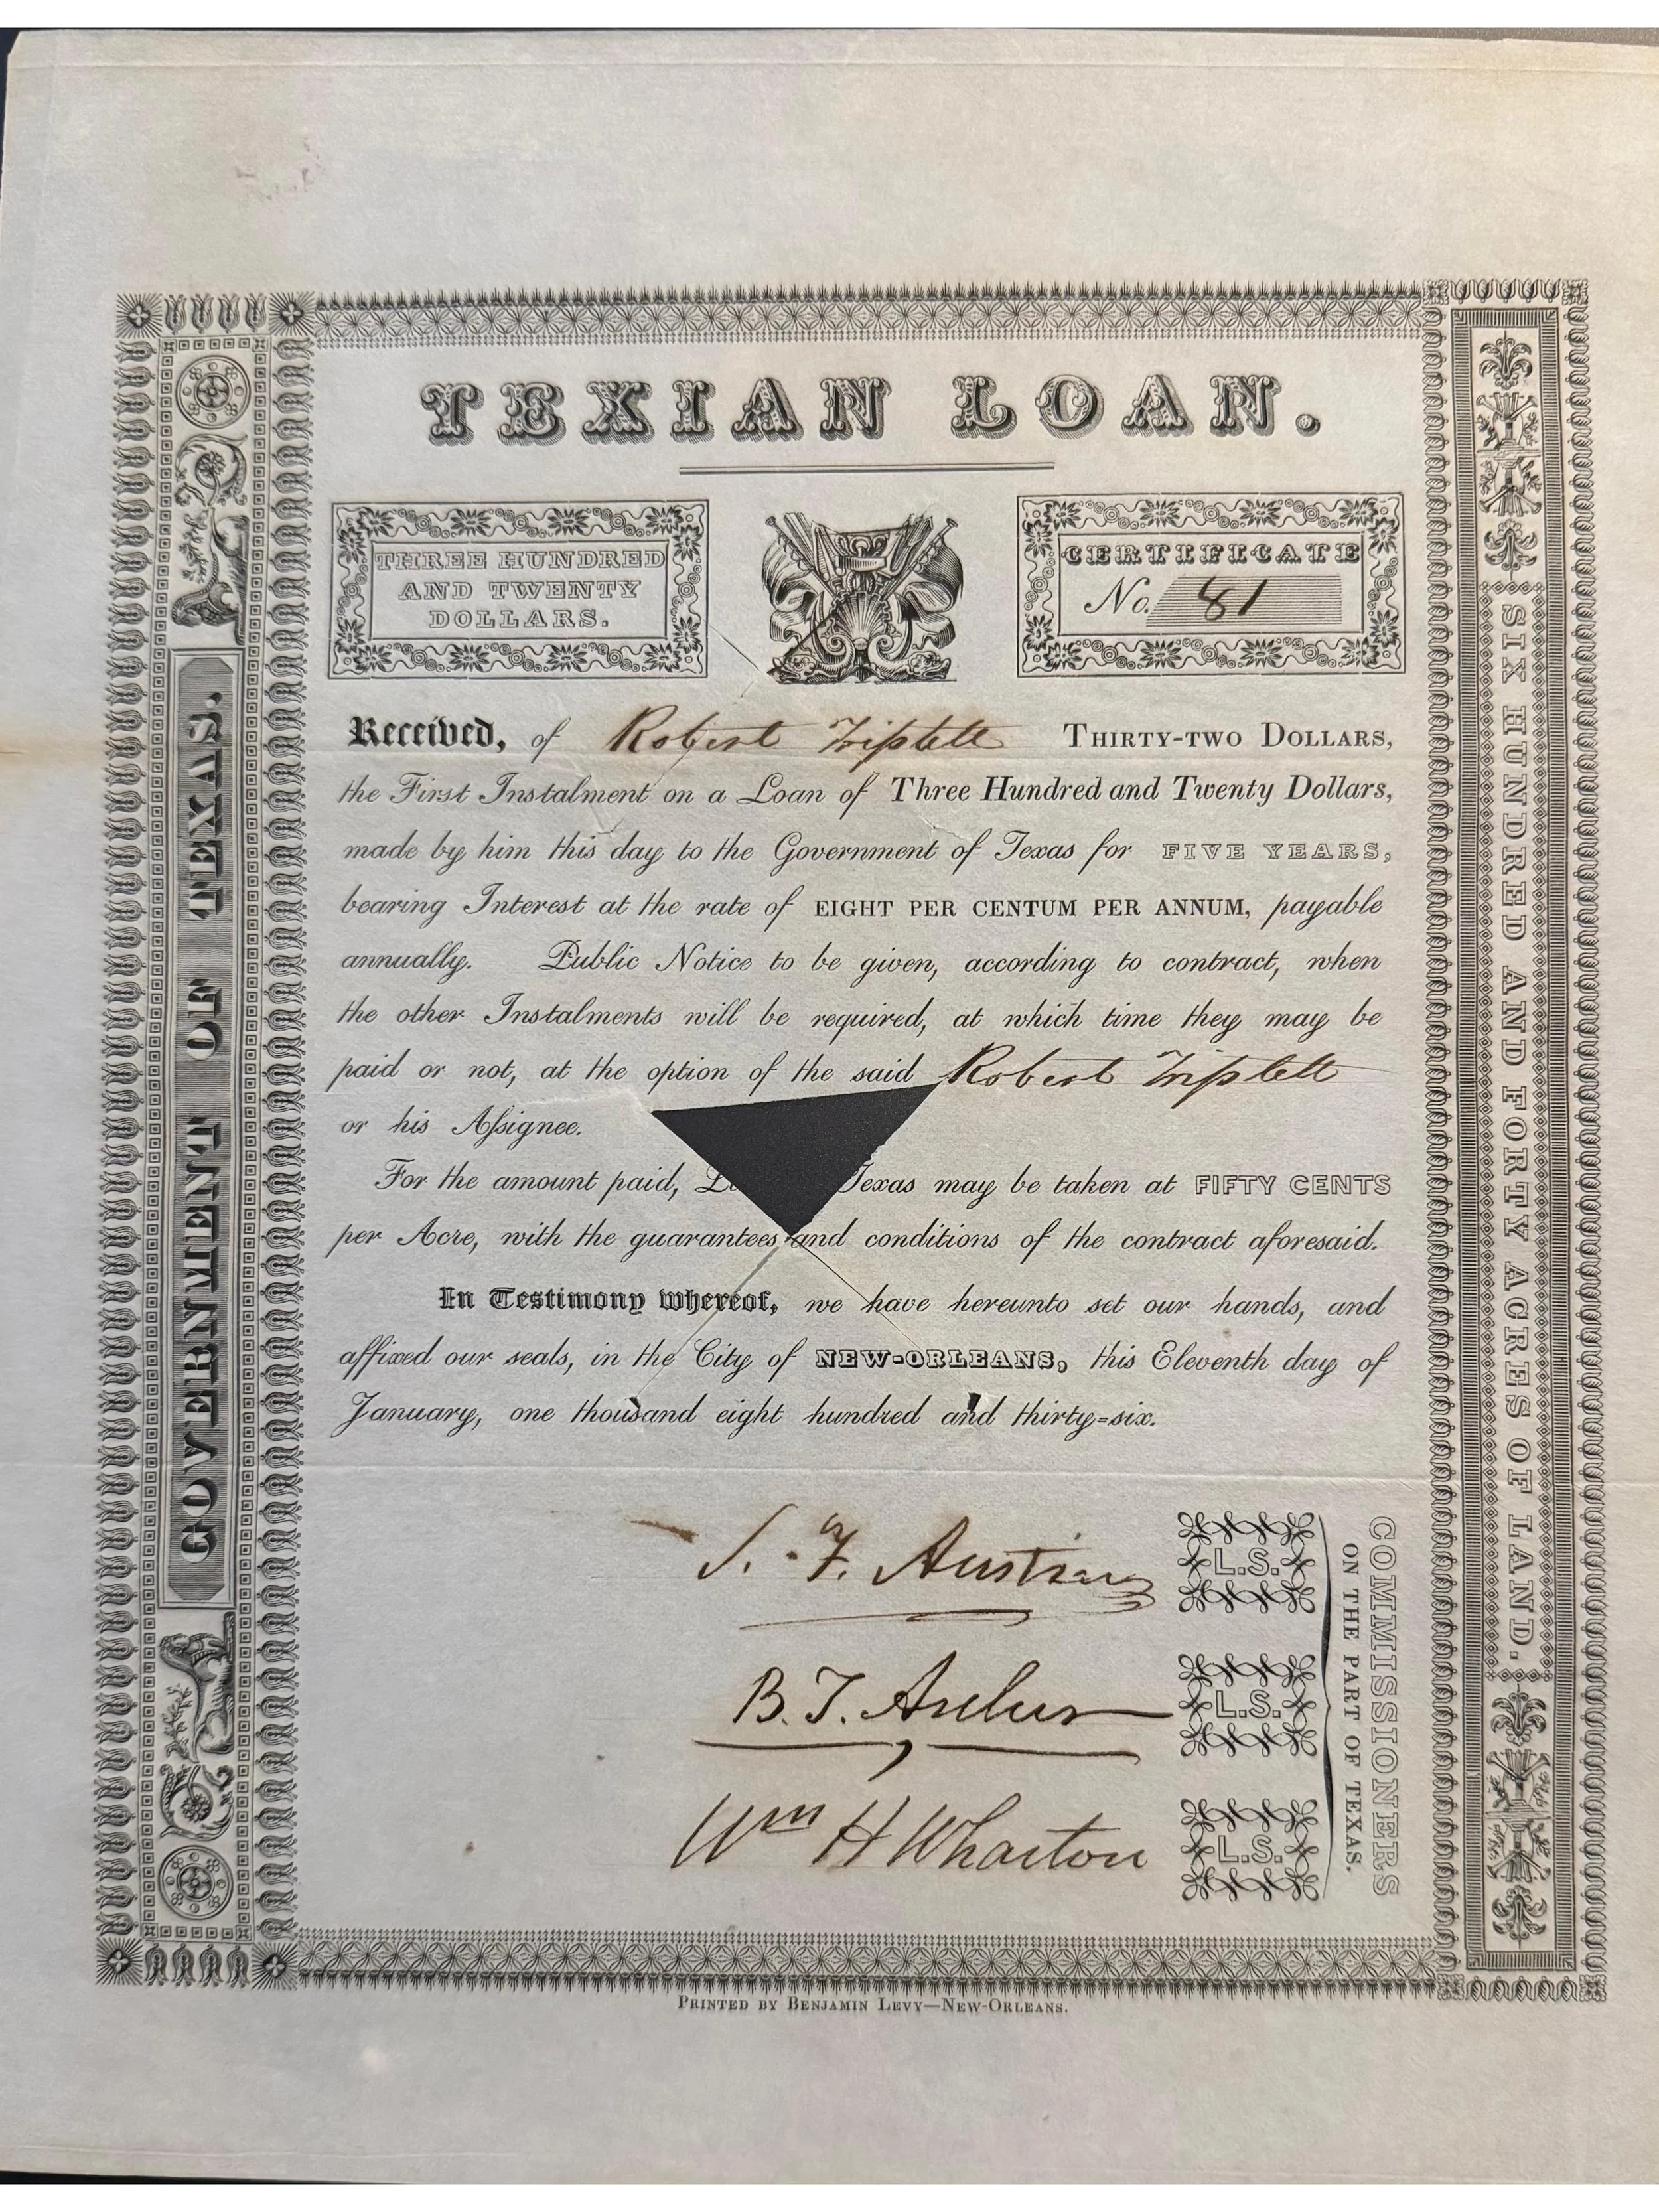 TEXIAN LOAN.
THREE HUNDRED
AND TWENTY
DOLLARS.
CERTIFICATE
No. 81
Received, of Robert Triplett THIRTY-TWO DOLLARS,
the First Instalment on a Loan of Three Hundred and Twenty Dollars,
made by him this day to the Government of Texas for FIVE YEARS,
bearing Interest at the rate of EIGHT PER CENTUM PER ANNUM, payable
annually. Public Notice to be given, according to contract, when
the other Instalments will be required, at which time they may be
paid or not, at the option of the said Robert Triplett
or his Aſsignee.
For the amount paid, Texas may be taken at FIFTY CENTS
per Acre, with the guarantees and conditions of the contract aforesaid.
In Testimony whereof, we have hereunto set our hands, and
affixed our seals, in the City of NEW-ORLEANS, this Eleventh day of
January, one thousand eight hundred and thirty=six.
S. F. Austin L.S.
B. T. Archer L.S.
Wm H Wharton L.S.
COMMISSIONERS
ON THE PART OF TEXAS.
GOVERNMENT OF TEXAS.
SIX HUNDRED AND FORTY ACRES OF LAND.
PRINTED BY BENJAMIN LEVY—NEW-ORLEANS.